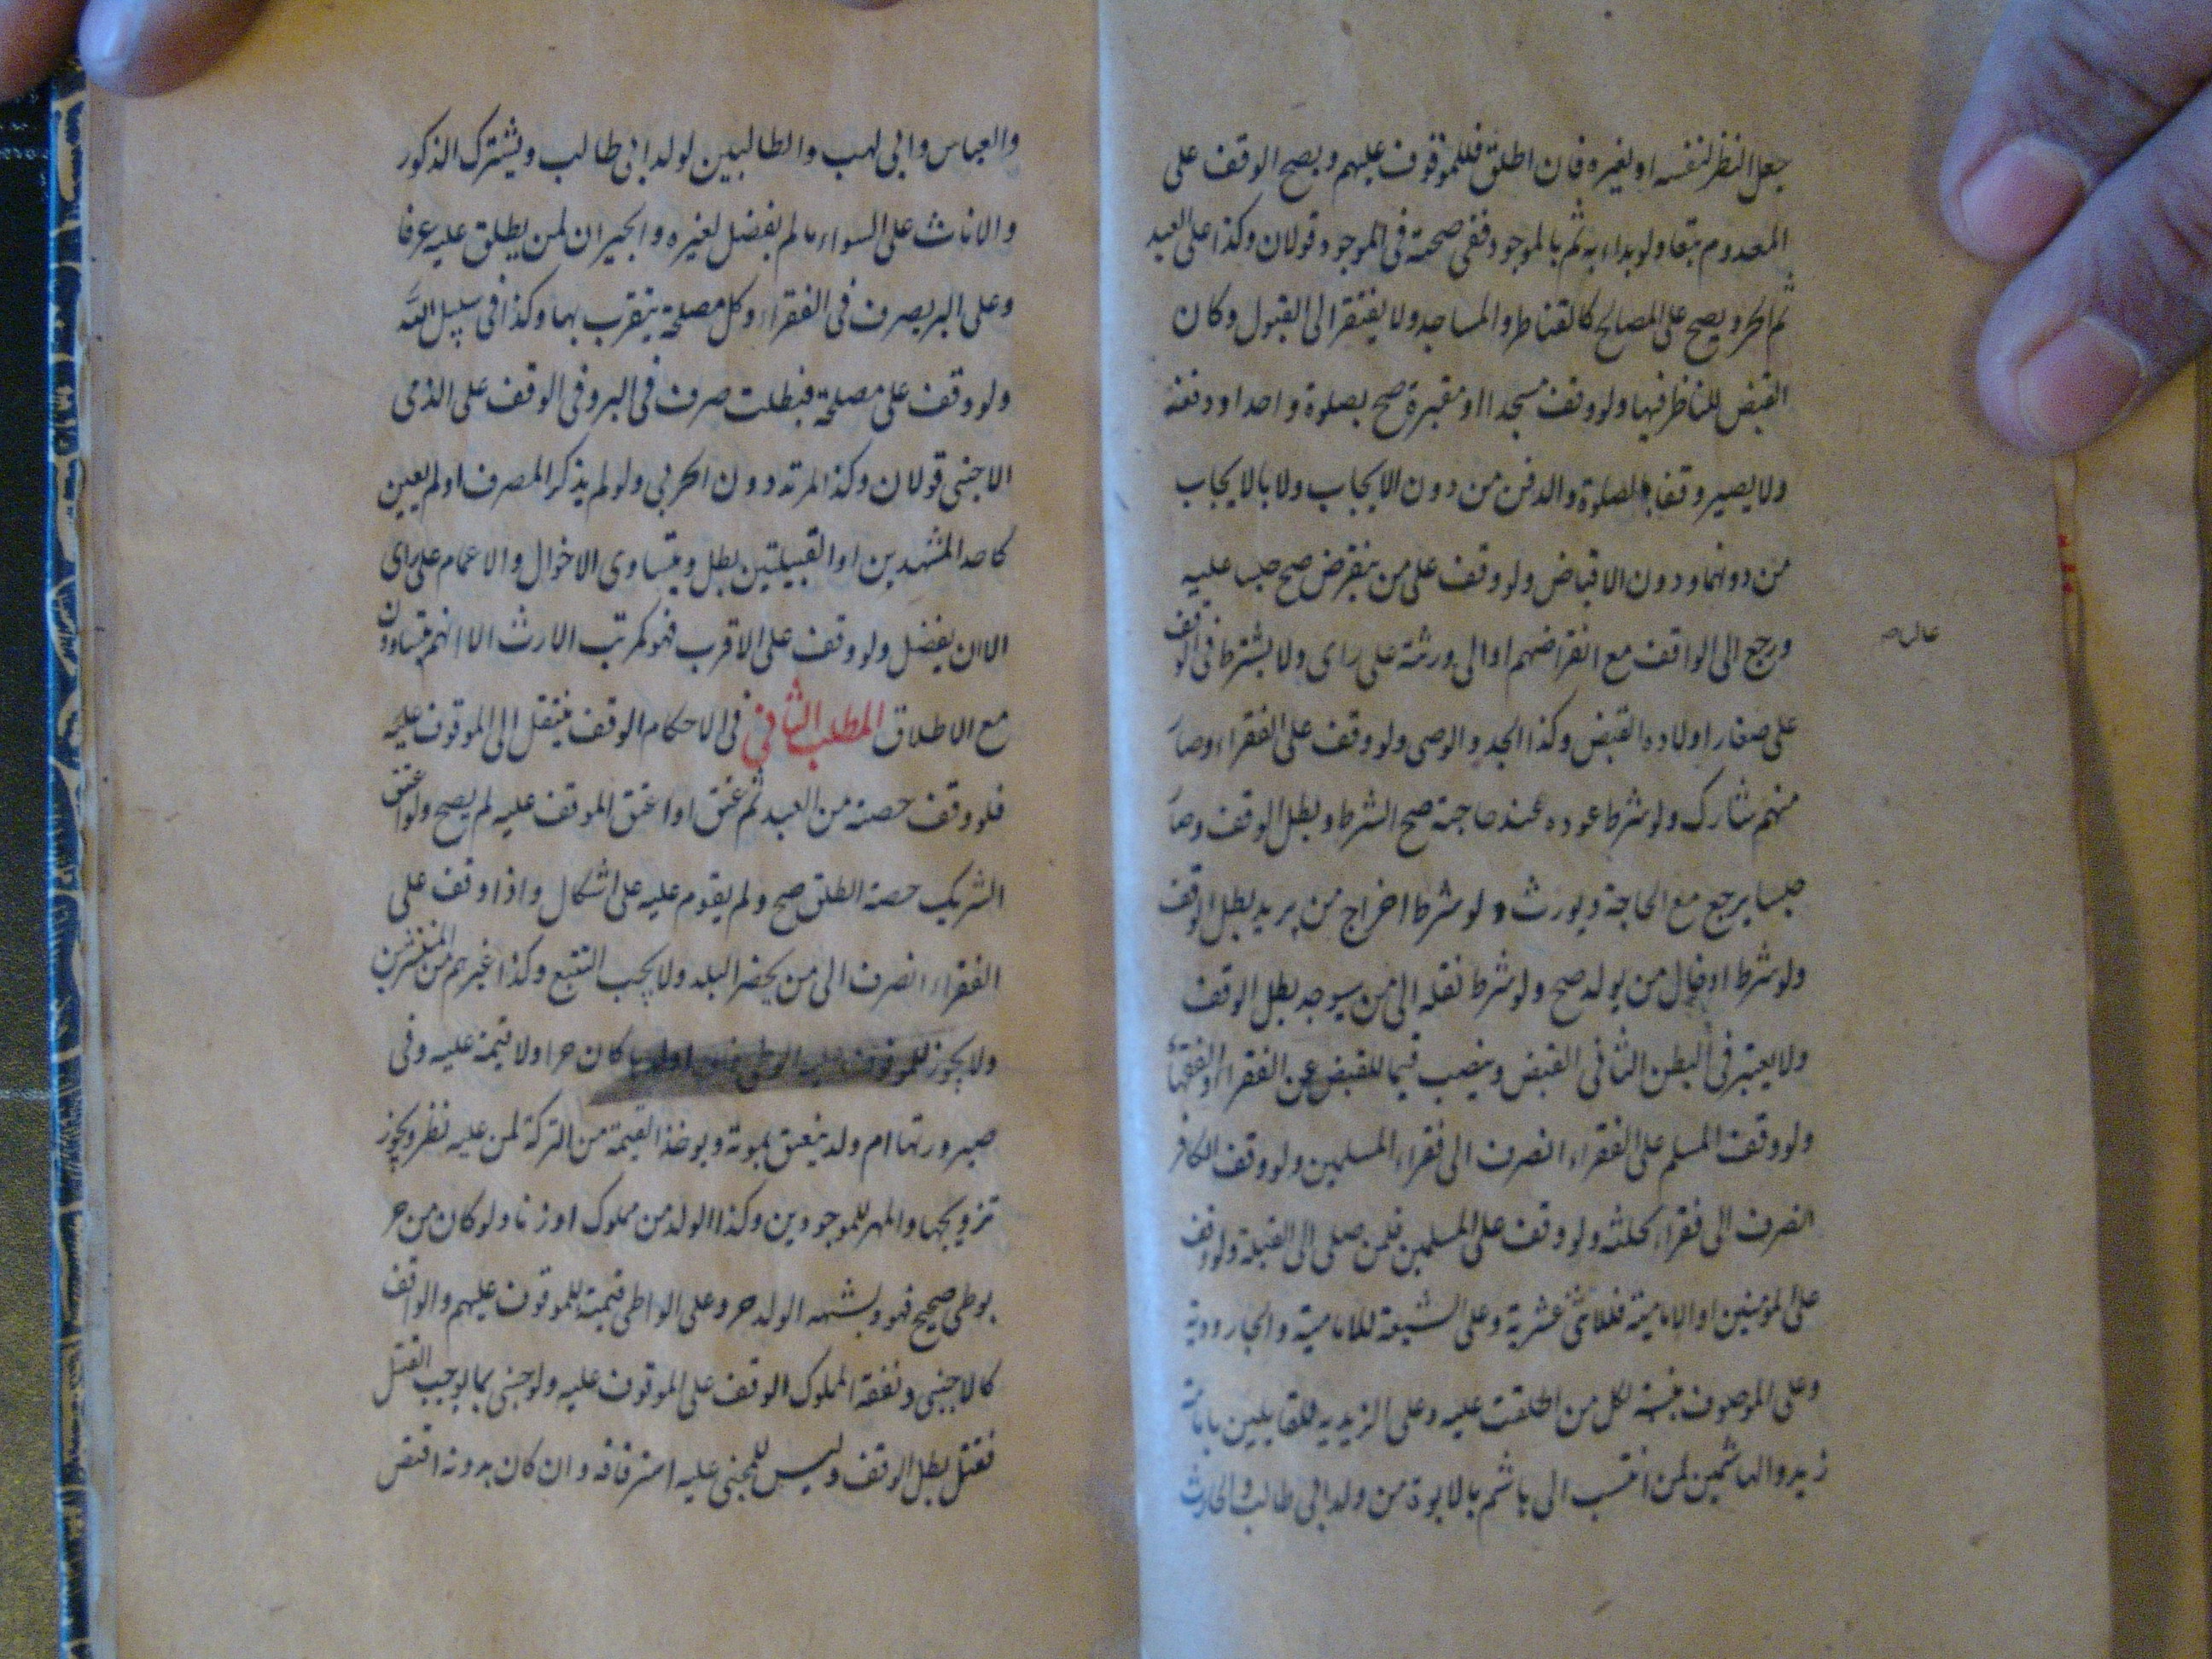 جعل النظر لنفسه او لغيره فان اطلق فللموقوف عليهم و يصح الوقف على
المعدوم تبعا ولو بداء به ثم بالموجود ففى صحته فى الموجود قولان وكذا على العبد
ثم الحر و يصح على المصالح كالقناطر والمساجد ولا يفتقر الى القبول وكان
القبض للناظر فيها ولو وقف مسجدا او مقبرة صح بصلوة واحد او دفنه
ولا يصير وقفا بالصلوة والدفن من دون الايجاب ولا بالايجاب
من دونهما ودون الاقباض ولو وقف على من ينقرض صح حبب عليه
ورجع الى الواقف مع انقراضهم او الى ورثته على راى ولا يشترط فى الوقف
على صغار اولاده القبض وكذا الجد والوصى ولو وقف على الفقراء وصار
منهم شارك ولو شرط عوده عند حاجته صح الشرط وبطل الوقف وصار
حبسا يرجع مع الحاجة ويورث ولو شرط اخراج من يريد بطل الوقف
ولو شرط ادخال من يولد صح ولو شرط نقله الى من سيوجد بطل الوقف
ولا يعتبر فى البطن الثانى القبض وينصب قيما للقبض عن الفقراء والفقهاء
ولو وقف المسلم على الفقراء انصرف الى فقراء المسلمين ولو وقف الكافر
انصرف الى فقراء نحلته ولو وقف على المسلمين فلمن صلى الى القبلة ولو وقف
على المؤمنين او الامامية فللاثنى عشرية وعلى الشيعة للامامية والجارودية
وعلى الموصوف بنسبة لكل من اطلقت عليه وعلى الزيدية للقايلين بامامة
زيد والهاشمين لمن انتسب الى هاشم بالابوة من ولد ابى طالب والحارث
والعباس وابى لهب والطالبين لولد ابى طالب ويشترك الذكور
والاناث على السواء مالم يفضل لغيره والجيران لمن يطلق عليه عرفا
وعلى البر يصرف فى الفقراء وكل مصلحة يتقرب بها وكذا فى سبيل الله
ولو وقف على مصلحة فبطلت صرف فى البر وفى الوقف على الذمى
الاجنبى قولان وكذا المرتد دون الحربى ولو لم يذكر المصرف او لم يعين
كاحد المشهدين او القبيلتين بطل ويتساوى الاخوال والاعمام على راى
الا ان يفضل ولو وقف على الاقرب فهو كمرتب الارث الا انهم يتساوون
مع الاطلاق المطلب الثانى فى الاحكام الوقف ينتقل الى الموقوف عليه
فلو وقف حصته من العبد ثم عتق او اعتق الموقف عليه لم يصح ولو اعتق
الشريك حصة الطلق صح ولم يقوم عليه على اشكال واذا وقف على
الفقراء انصرف الى من يحضر البلد ولا يجب التتبع وكذا غيرهم من المنتشرين
ولا يجوز للموقوف عليه الوطى كان حرا ولا قيمة عليه وفى
صيرورتها ام ولد ينعتق بموته ويوخذ القيمة من التركة لمن عليه نظر ويجوز
تزويجها والمهر للموجودين وكذا الولد من مملوك او زنا ولو كان من حر
بوطى صحيح فهو وبشبهه الولد حر وعلى الواطى قيمته للموقوف عليهم والواقف
كالاجنبى ونفقة المملوك الوقف على الموقوف عليه ولو جنى بما يوجب القتل
فقتل بطل الوقف وليس للمجنى عليه استرقاقه وان كان بدونه اقتص